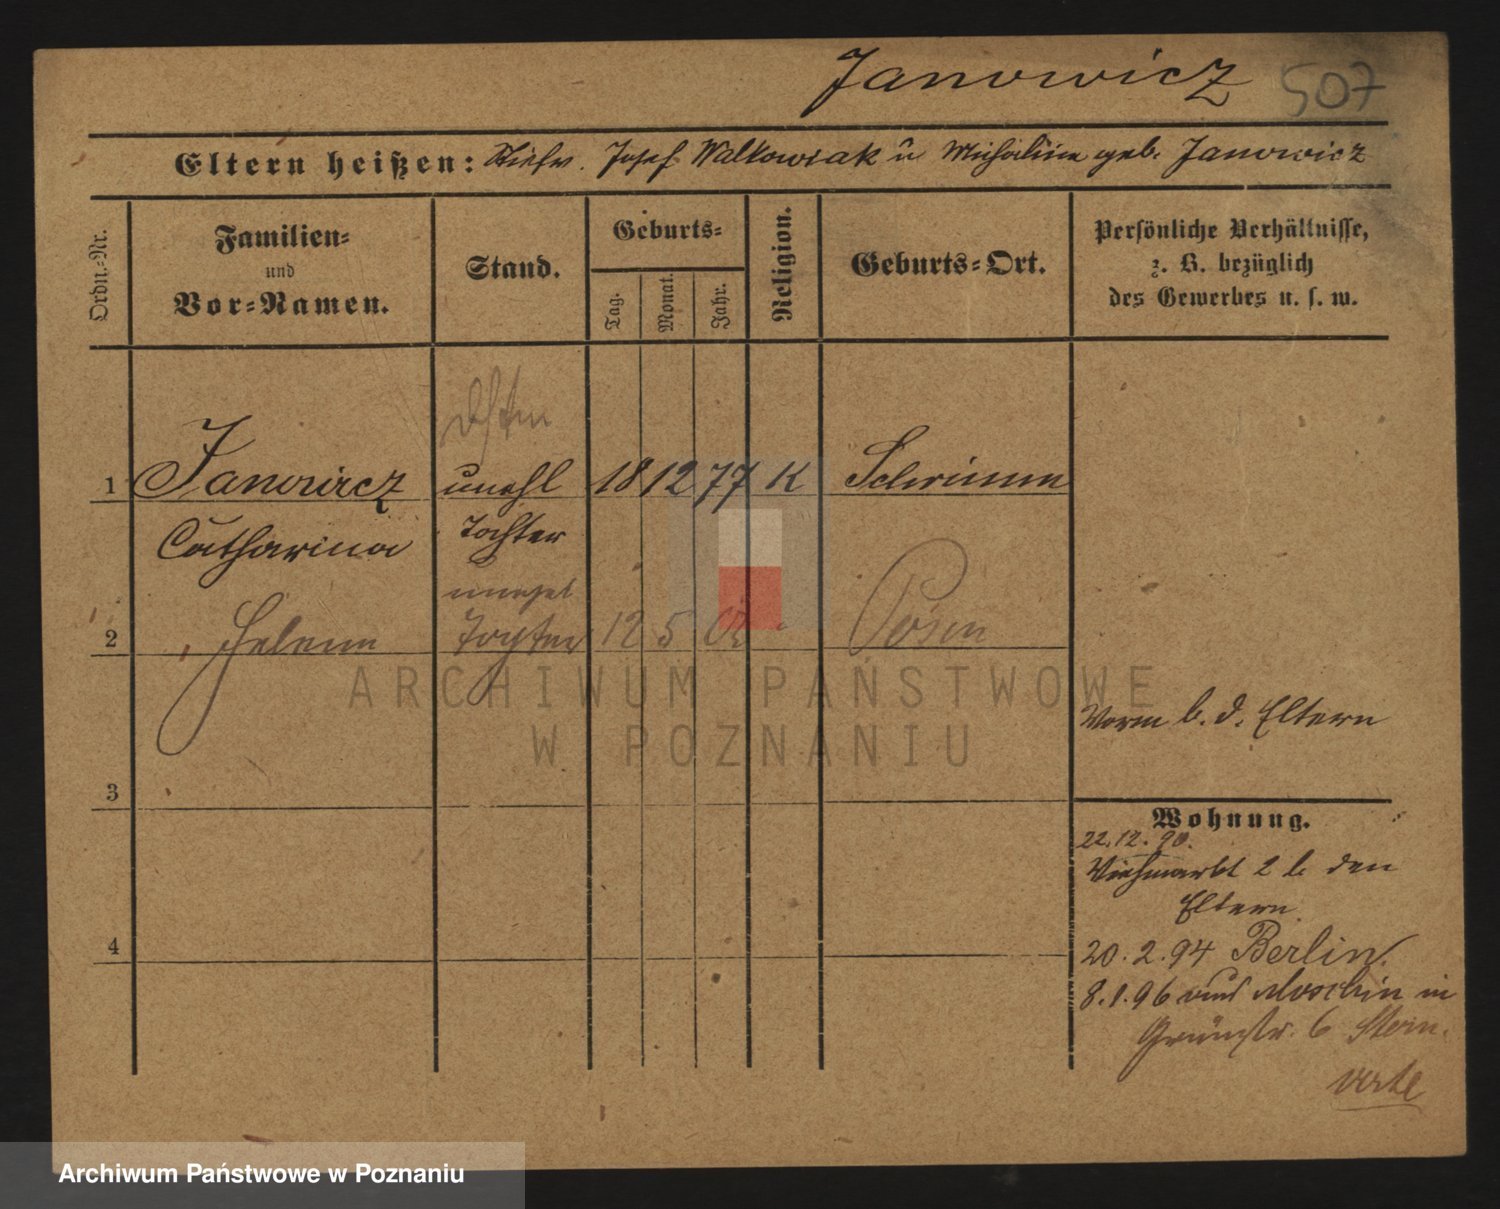 Janowicz 507
Eltern heißen: Stiefv. Josef Walkowiak u Michaline geb. Janowicz
Ordn.-Nr.
Familien-
und
Vor-Namen.
Stand.
Geburts-
Tag.
Monat.
Jahr.
Religion.
Geburts-Ort.
Persönliche Verhältnisse,
z. B. bezüglich
des Gewerbes u. s. w.
1 Janowicz unehl 18 12 77 K Schrimm
Catharina Tochter
unehel
2 Helene Tochter 12 5 Posen
Vorm b. d. Eltern
3
Wohnung.
22.12.90.
Viehmarkt 2 b. den
Eltern
4
20.2.94 Berlin.
8.1.96 aus Moschin in
Grünstr. 6
verte
ARCHIWUM PAŃSTWOWE
W POZNANIU
Archiwum Państwowe w Poznaniu